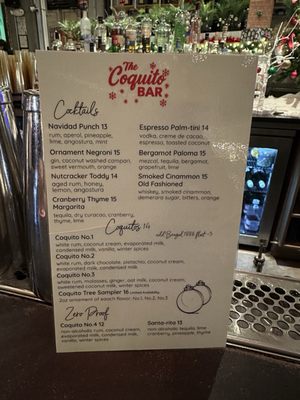 The
Coquito
BAR
Cocktails
Navidad Punch 13
rum, aperol, pineapple,
lime, angostura, mint
Ornament Negroni 15
gin, coconut washed campari,
sweet vermouth, orange
Nutcracker Toddy 14
aged rum, honey,
lemon, angostura
Cranberry Thyme 15
Margarita
tequila, dry curacao, cranberry,
thyme, lime
Espresso Palm-tini 14
vodka, creme de cacao,
espresso, toasted coconut
Bergamot Paloma 15
mezcal, tequila, bergamot,
grapefruit, lime
Smoked Cinammon 15
Old Fashioned
whiskey, smoked cinammon,
demerara, orange, angostura
Coquitos 14
add 1888 float +3
Coquito No.1
white rum, coconut cream, evaporated milk,
condensed milk, vanilla, winter spices
Coquito No.2
white rum, dark chocolate, pistachio, coconut cream,
evaporated milk, condensed milk
Coquito No.3
white rum, molasses, ginger, oat milk, coconut cream,
sweetened coconut milk, winter spices
Coquito Tree Sampler 16 Limited Availability
2oz ornament of each flavor: No.1, No.2, No.3
Zero Proof
Coquito No.4 12
non-alcoholic rum, coconut cream,
evaporated milk, condensed milk,
vanilla, winter spices
Santa-rita 13
non-alcoholic tequila, lime
cranberry, pineapple, thyme